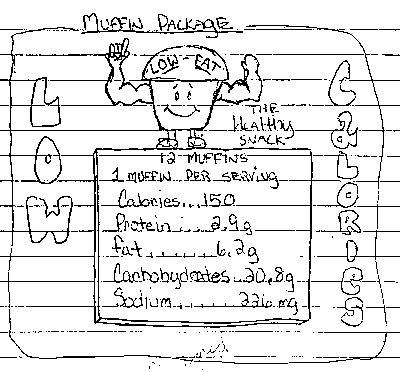 MUFFIN PACKAGE
LOW-FAT
THE
Healthy
SNACK
LOW
CALORIES
12 MUFFINS
1 MUFFIN PER SERVING
Calories...150
Protein....2.9g
fat.......6.2g
Carbohydrates..20.8g
Sodium......226 mg